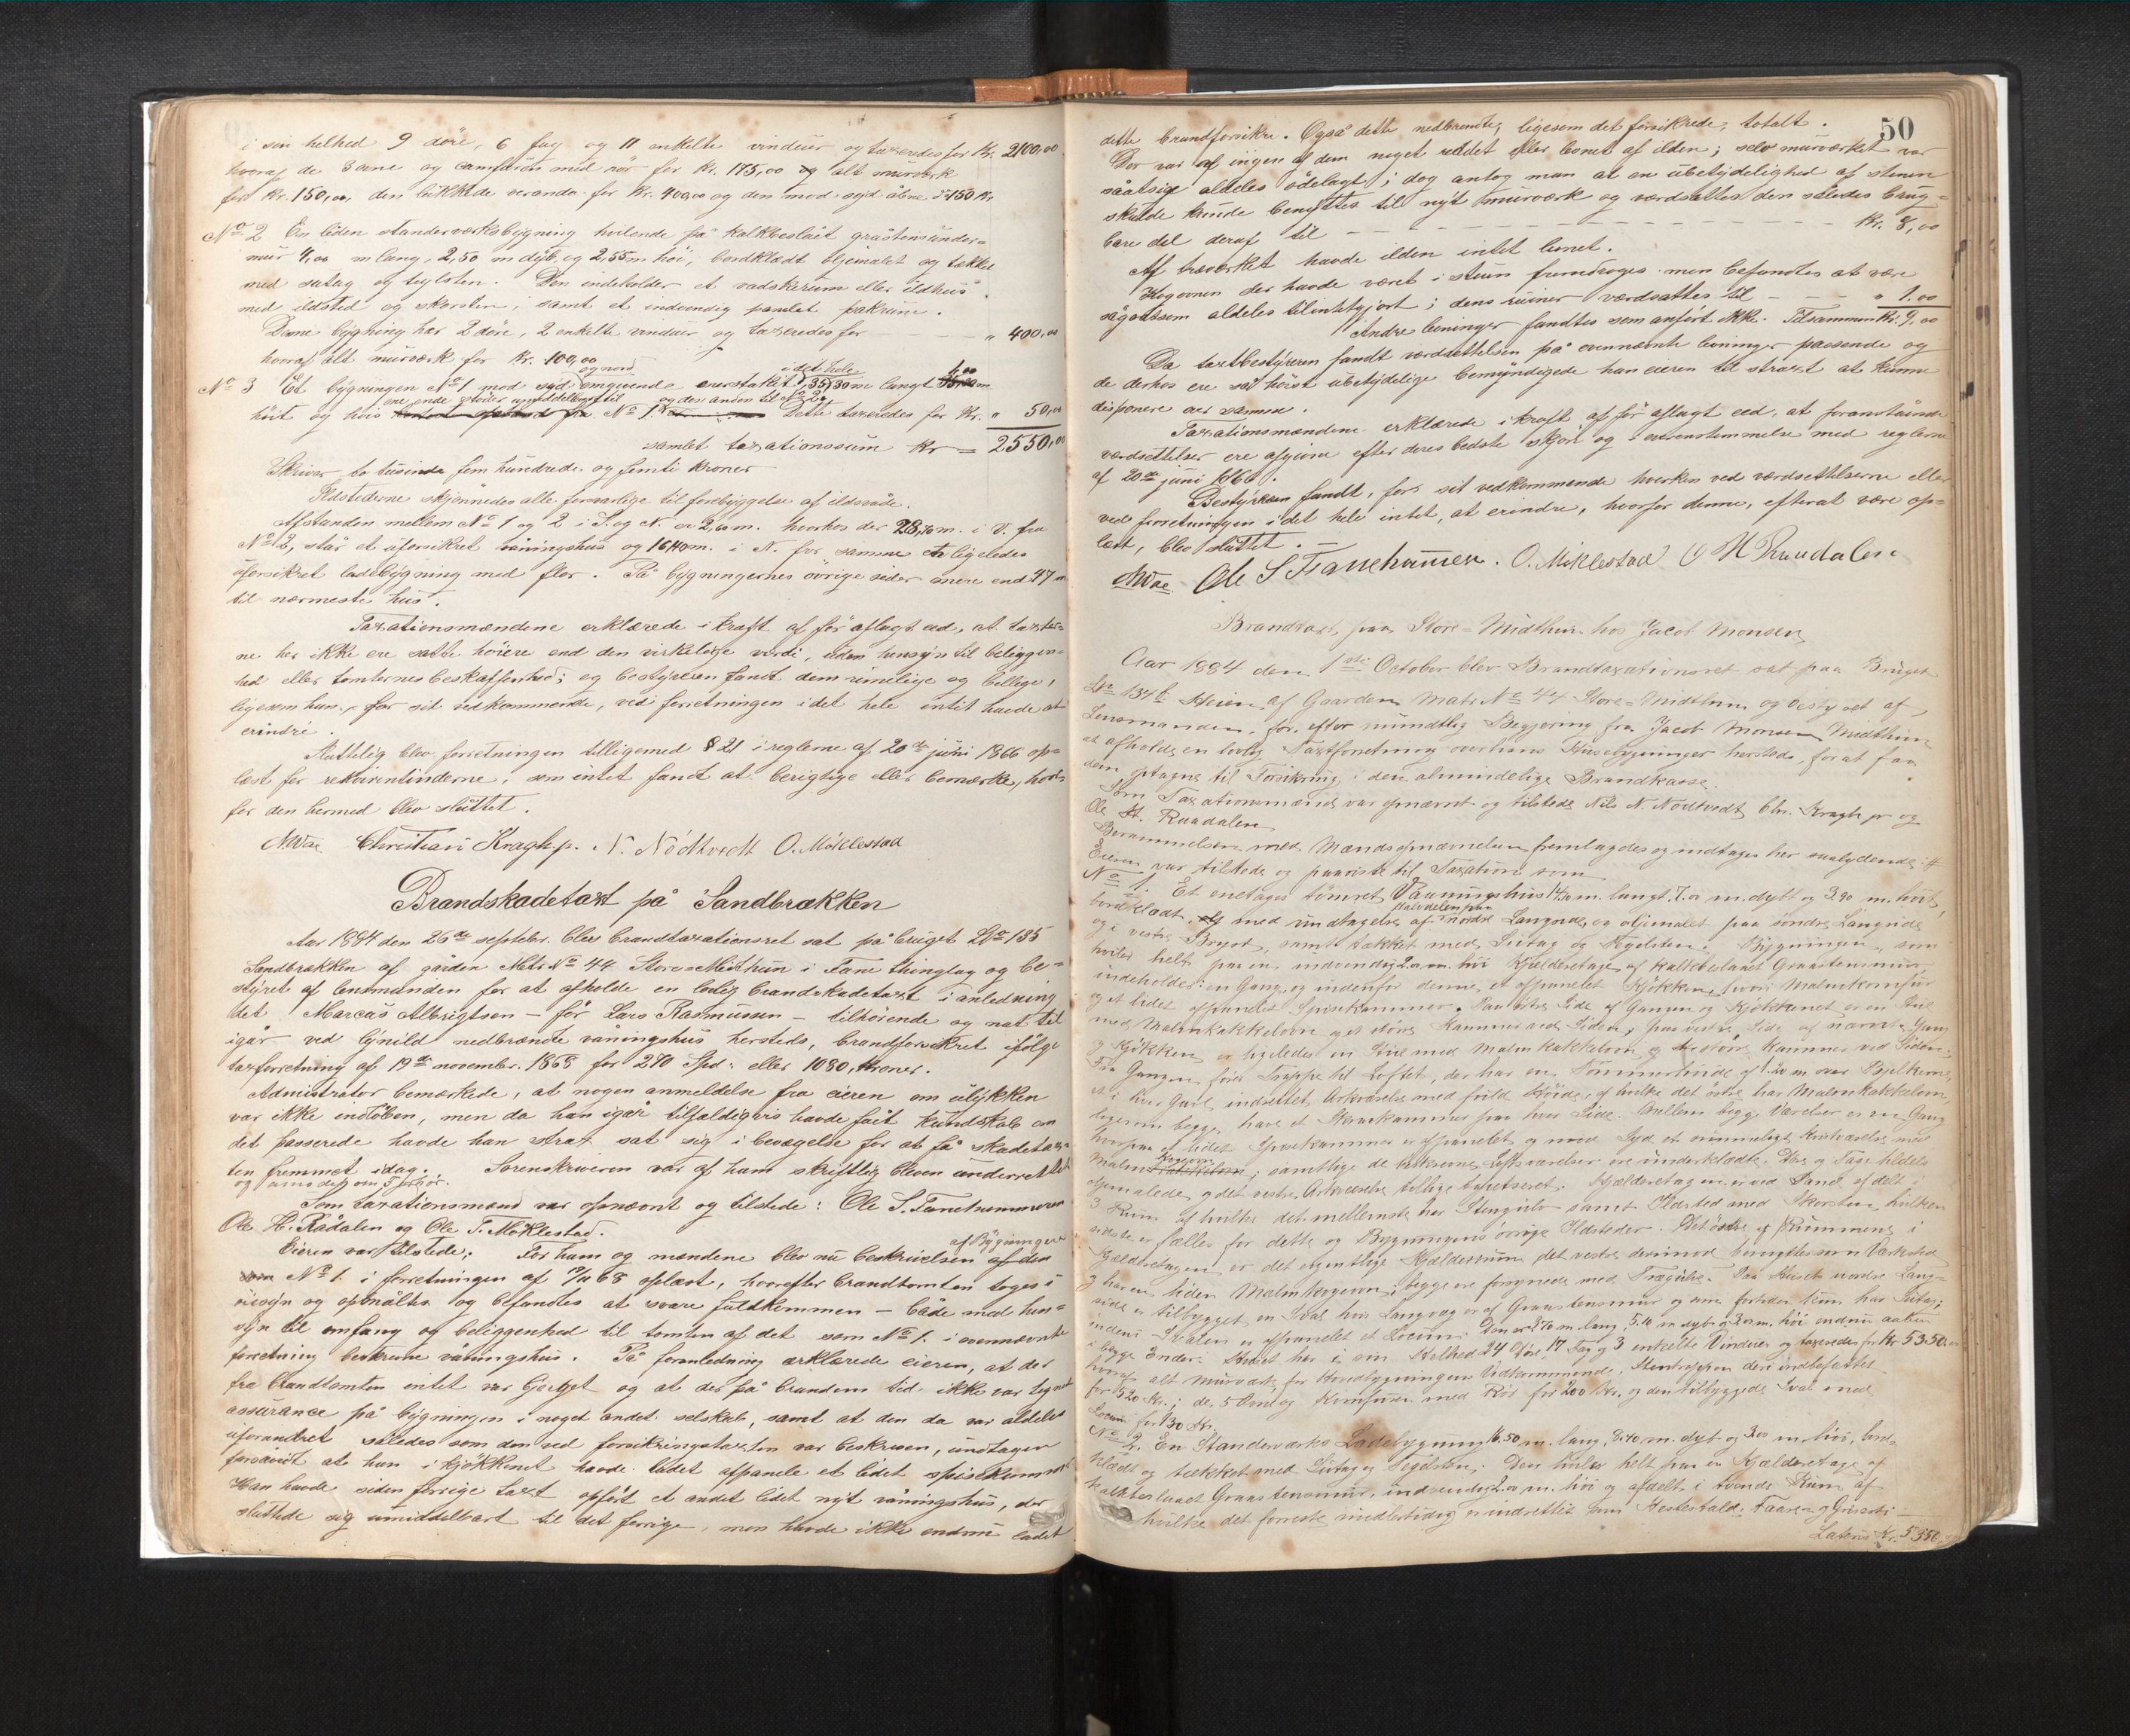 i sin helhed 9 döre, 6 fag og 11 enkelte vinduer og taxeredes for Kr. 2100,00
hvoraf de 3 ovne og comfuren med rör for kr. 175,00 og alt murværk
for kr. 150,00, den lukkede veranda for kr. 400,00 og den mod syd åbne 450 kr.
No 2 En liden standerværksbygning hvilende på kalkbeslåit gråstensunder-
mur 4,00 m lang, 2,50 m dyb, og 2,55 m höi, bordklædt oljemalet og tækket
med sutag og teglsten. Den indeholder et vadskerum eller ildhus
med ildsted og skorsten, samt et indvendig panelet pakrum.
Denne bygning har 2 döre, 2 enkelte vinduer og taxeredes for — — " 400,00
hvoraf alt murværk for kr. 100,00
No 3 Et bygningen No 1 mod syd og nord omgivende overstaket, i det hele 30 m langt
höit og hvis ene ende støder umiddelbart til No 1 og den anden til No 2. Dette taxeredes for kr. " 50,00
samlet taxationssum kr = 2550,00
Skriver to tusinde fem hundrede og femti kroner
Ildstederne skjönnedes alle forsvarlige til forebyggelse af ildsvåde.
Afstanden mellem No 1 og 2 i S. og N. er 2,60 m. hvorhos der 28,70 m. i V. fra
No 2, står et uforsikret våningshus og 16,40 m. i N. for samme en ligeledes
uforsikret ladebygning med flor. På bygningernes övrige sider mere end 47 m
til nærmeste hus.
Taxationsmændene erklærede i kraft af för aflagt eed, at taxter-
ne her ikke ere satte höiere end den virkelige verdi, uden hensyn til beliggen-
hed eller tomternes beskaffenhed; og bestyreren fandt dem rimelige og billige,
ligesom han, for sit vedkommende, ved forretningen i det hele intet havde at
erindre.
Sluttelig blev forretningen tilligemed § 21 i reglerne af 20de juni 1866 op-
læst for rekvirentinderne, som intet fandt at berigtige eller bemærke, hvor-
for den hermed blev sluttet.
Christian Kragh p. N. Nödtvedt O. Möklestad
Brandskadetaxt på Sandbrækken
Aar 1884 den 26de septebr. blev brandtaxationsret sat på bruget LNo 135
Sandbrækken af gården Matr No 44 Store-Midthun i Fane thinglag og be-
styret af lensmanden for at afholde en lovlig brandskadetaxt i anledning
det Marcus Albrigtsen — för Lars Rasmussen — tilhörende og nat til
igår ved lynild nedbrændte våningshus hersteds, brandforsikret ifölge
taxforretning af 19de november 1868 for 270 Spd. eller 1080, kroner.
Administrator bemærkede, at nogen anmeldelse fra eieren om ulykken
var ikke indlöben, men da han igår tilfældigvis havde fåit kundskab om
det passerede havde han strax sat sig i bevægelse for at få skadetax-
ten fremmet idag. Sorenskriveren var af ham skriftlig bleven underrettet
og anmodet om Forhör.
Som taxationsmænd var opnævnt og tilstede: Ole S. Fanehammeren
Ole H. Rådalen og Ole T. Möklestad.
Eieren var tilstede. For ham og mændene blev nu beskrivelsen af den af Bygningen
No 1. i forretningen af 19/11 68 oplæst, hvorefter brandtomten toges i
öiesyn og opmåltes og befandtes at svare fuldkommen — både med hen-
syn til omfang og beliggenhed til tomten af det som No 1. i ovennævnte
forretning beskrevne våningshus. På foranledning erklærede eieren, at der
fra brandtomten intet var bjerget og at der på brandens tid ikke var tegnet
assurance på bygningen i noget andet selskab, samt at den da var aldeles
uforandret således som den ved forsikringstaxten var beskreven, undtagen
forsåvidt at han i kjökkenet havde ladet afpanele et lidet spisekammer
Han havde siden forrige taxt opfört et andet lidet nyt våningshus, der
sluttede sig umiddelbart til det forrige, men havde ikke endnu ladet
50
dette brandforsikre. Også dette nedbrændte, ligesom det forsikrede, totalt.
Der var af ingen af dem noget reddet eller levnet af ilden; selv murværket var
såatsige aldeles ödelagt; dog antog man at en ubetydelighed af stenen
skulde kunde benyttes til nyt murværk og værdsattes den således brug-
bare del deraf til — — — — — — — — Kr. 8,00
Af træværket havde ilden intet levnet.
Kogovnen der havde været i stuen fremdroges men befandtes at være
sågodtsom aldeles tilintetgjort; dens ruiner værdsattes til — — — " 1.00
Andre levninger fandtes som anfört ikke. Tilsammen kr. 9,00
Da taxtbestyreren fandt værdsettelsen på ovennævnte levninger passende og
de derhos ere så höist ubetydelige bemyndigede han eieren til straxt at kunne
disponere over samme.
Taxationsmændene erklærede i kraft af för aflagt eed, at foranstående
værdsettelser ere afgivne efter deres bedste skjön og i overenstemmelse med reglerne
af 20de juni 1866.
Bestyreren fandt, for sit vedkommende hverken ved værdsettelserne eller
ved forretningen i det hele intet, at erindre, hvorfor denne, efterat være op-
læst, blev sluttet. —
Ole S Fanehammer. O. Möklestad O H Raadalen
Brandtaxt paa Store-Midthun hos Jacob Monsen
Aar 1884 den 1ste October blev Brandtaxationsret sat paa Bruget
LNo 134 b Heien af Gaarden Matr No 44 Store-Midthun og bestyret af
Lensmanden, for, efter mundtlig Begjæring fra Jacob Monsen Midthun
at afholde en lovlig Taxtforretning over hans Husebygninger hersteds, for at faa
dem optagne til Forsikring i den almindelige Brandkasse.
Som Taxationsmænd var opnævnt og tilstede Nils N. Nödtvedt, Chr. Kragh pr og
Ole H. Raadalen
Berammelsen med Mændsopnævnelsen fremlagdes og indtages her saalydende: #
Eieren var tilstede og paaviste til Taxation som
No 1. Et enetages tömret Vaaningshus 14,10 m. langt, 7.0 m. dybt og 3.90 m. höit,
bordklædt, med undtagelse af Halvdelen paa nordre Langside, og oljemalet paa söndre Langside
og i vestre Bryst, samt tækket med Sutag og Teglsten. Bygningen, som
hviler helt paa en indvendig 2.00 m. höi Kjælderetage af kalkbeslaaet Graastensmur
indeholder: en Gang, og indenfor denne, et afpanelet Kjökken, hvori Malmkomfur
og et lidet afpanelet Spisekammer. Paa östre Side af Gangen og Kjökkenet er en Stue
med Malmkakkelovn og et större Kammer ved Siden; paa vestre Side af nævnte Gang
og Kjökken er ligeledes en Stue med Malmkakkelovn og et större Kammer ved Siden.
Fra Gangen förer Trappe til Loftet, der har en Tömmerhöide af 1.20 m. over Bjelkerne,
et i hver Gavl, indrettet, Arkværelse med fuld Höide, af hvilke det östre har Malmkakkelovn,
ligesom begge have et Skraakammer paa hver Side. Mellem begge Værelser er en Gang
hvorpaa et lidet Spisekammer er afpanelet og mod Syd et rummeligt Kvistværelse med
Malm Kogeovn; samtlige de beskrevne Loftsværelser ere underklædte. Hus og Tage tildels
oljemalede, og det vestre Arkværelse tillige tapetseret. Kjælderetagen er ved Panel afdelt i
3 Rum af hvilke det mellemste har Stengulv samt Ildsted med Skorsten, hvilken
sidste er fælles for dette og Bygningens övrige Ildsteder. Det östre af Rummene i
Kjælderetagen er det egentlige Kjælderrum, det vestre derimod benyttes som Værksted
og har en liden Malmkogeovn; begge ere forsynede med Trægulve. Paa Huset nordre Lang-
side er tilbygget en Sval hvis Langvæg er af Graastensmur og som forövrigt kun har Sutag;
indeni Svalen er afpanelet et Locum. Den er 2.70 m. lang, 5.10 m. dyb og 2.20 m. höi endnu aaben
i begge Ender. Huset har i sin Helhed 24 Döre, 17 Fag og 3 enkelte Vinduer og taxeredes for Kr. 5350.00
hvoraf alt Murværk, for Hovedbygningens Vedkommende, Stentrappen deri indbefattet
for 520 Kr.; de 5 Ovne og Komfuren med Rör for 200 Kr. og den tilbyggede Sval med
Locum for 130 Kr.
No 2. En Standerværks Ladebygning 16.50 m. lang, 8.40 m. dyb og 3.00 m. höi, bord-
klædt og tækket med Sutag og Teglsten. Den hviler helt paa en Kjælderetage af
kalkbeslaaet Graastensmur, indvendig 2.00 m. höi og afdelt i tvende Rum af
hvilke det forreste midlertidig er indrettet som Hestestald, Faare- og Grisesti —
Lateris Kr. 5350.